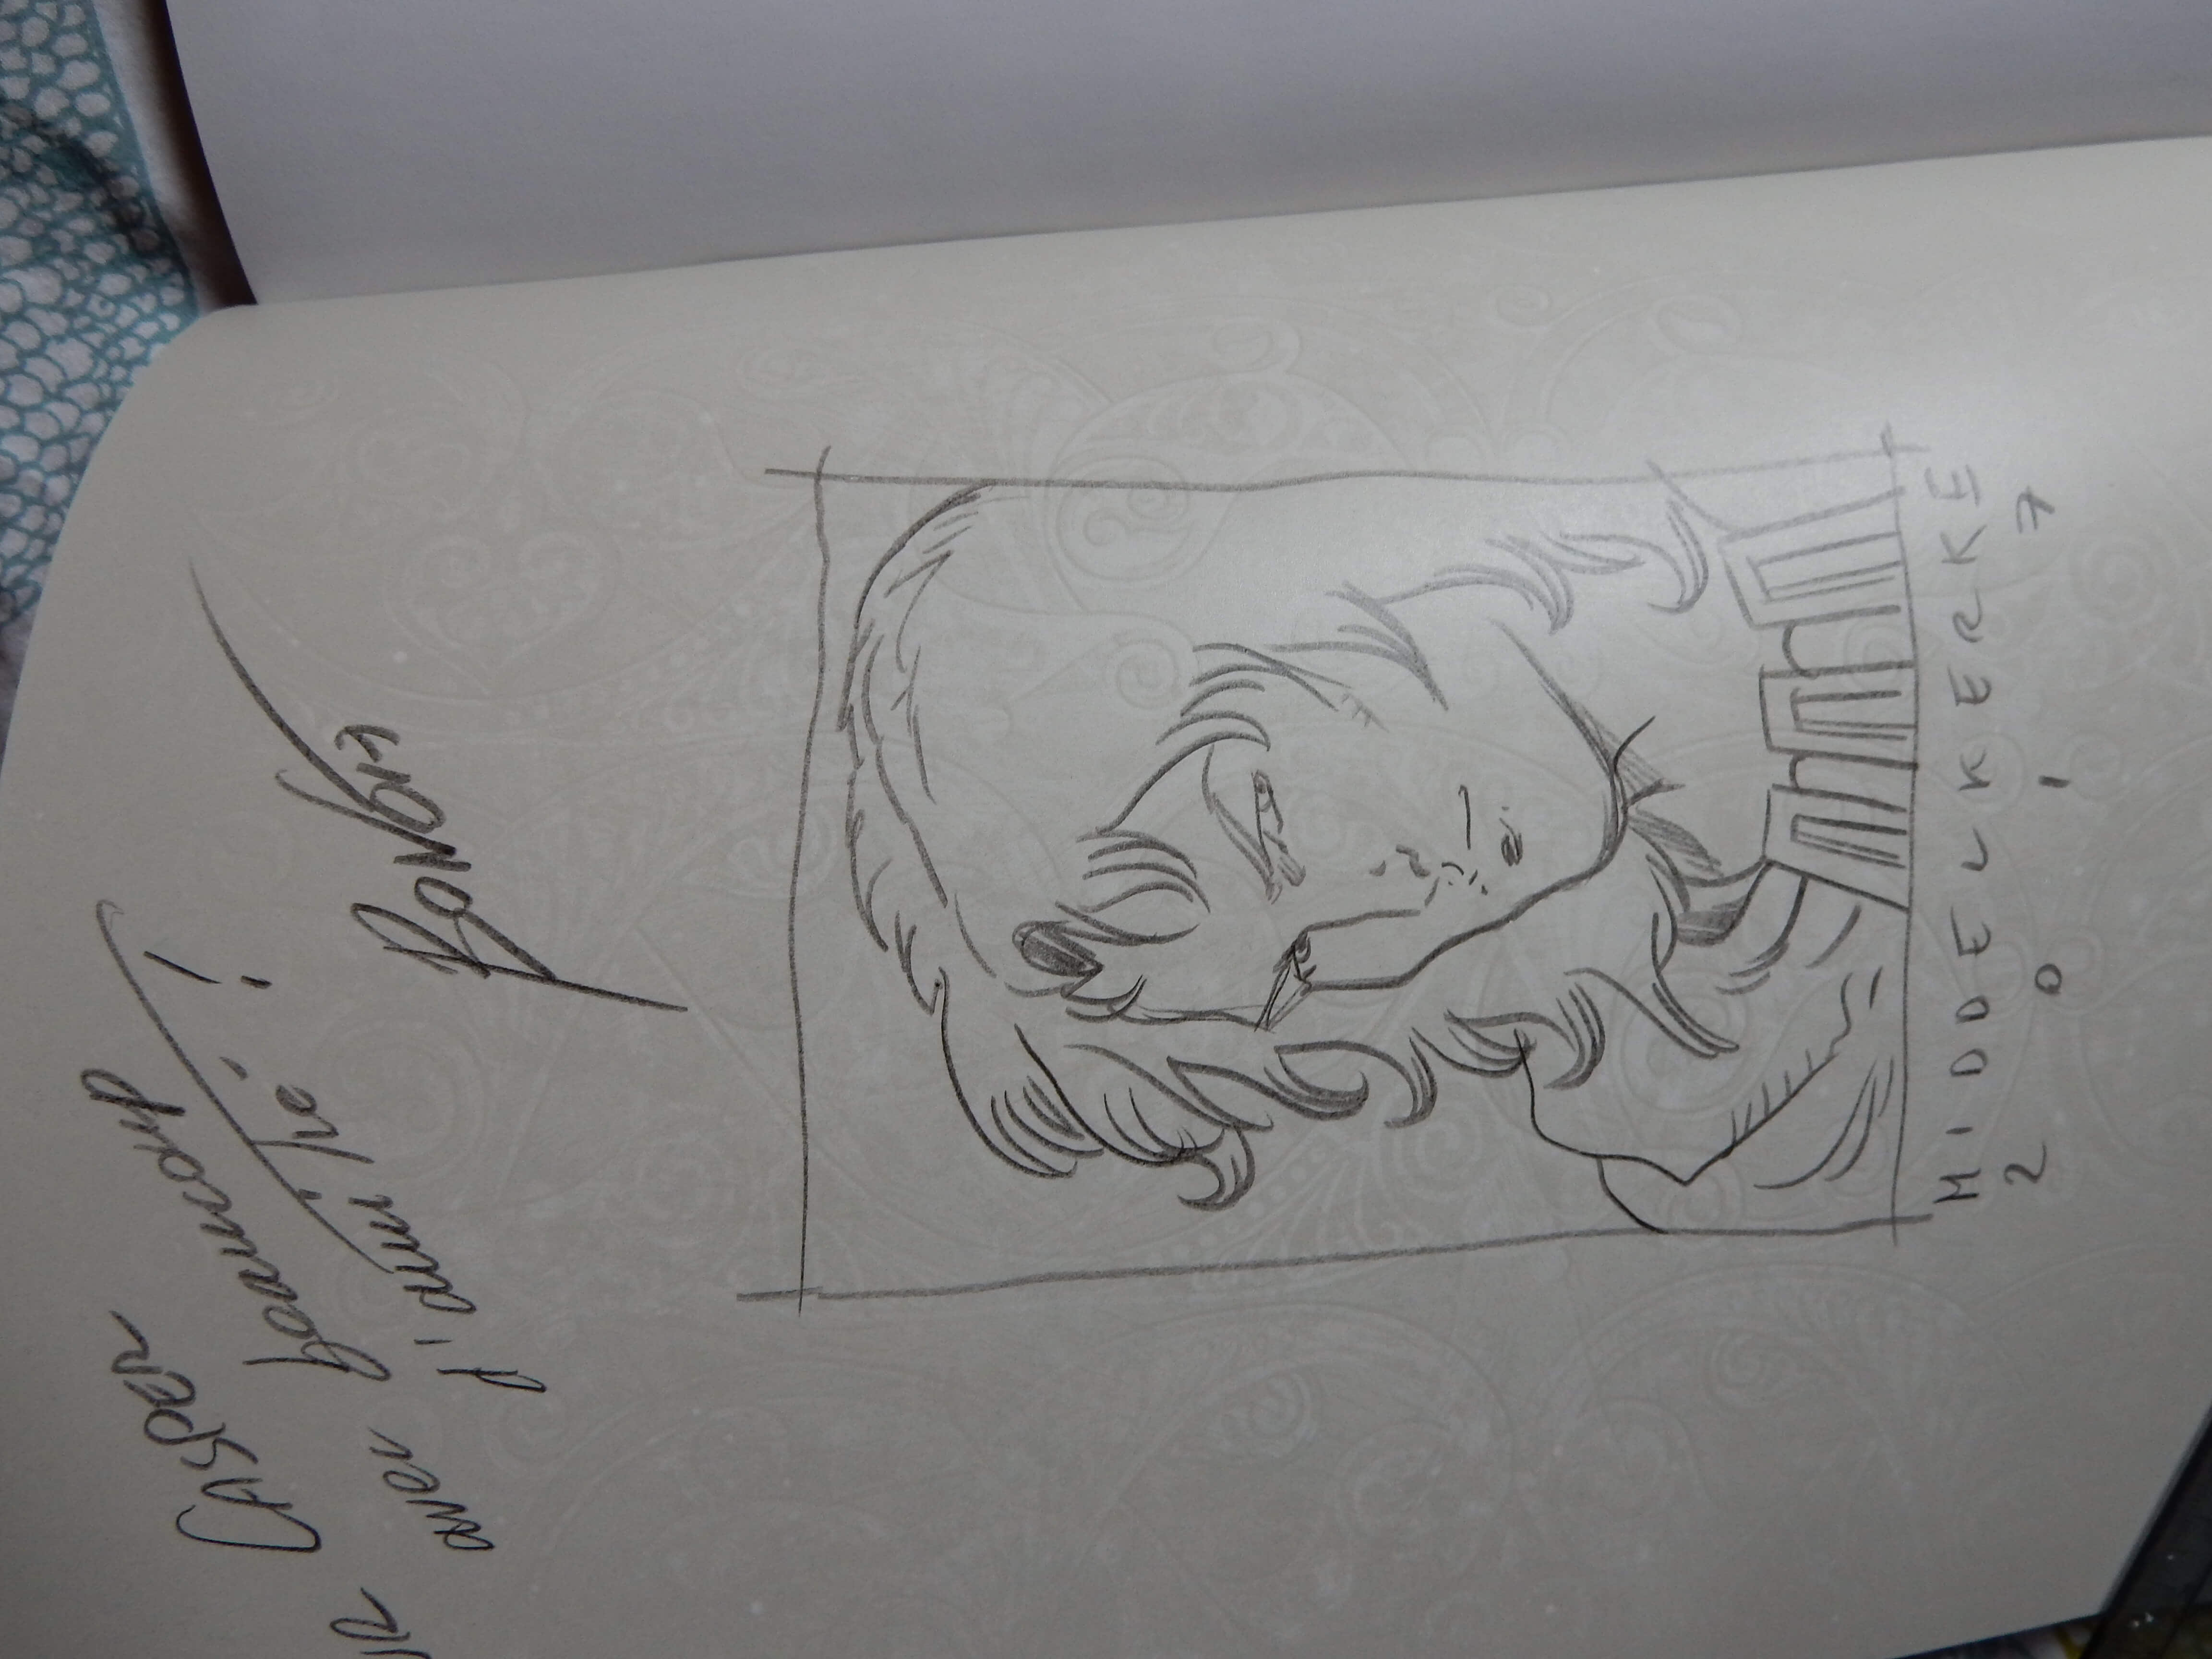 UR CASPER
avec beaucoup
d'amitié !
BONOIS
MIDDELKERKE
2017